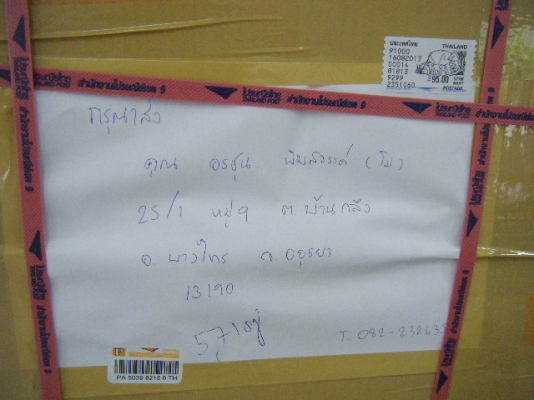 ประเทศไทย THAILAND
91000
16082013
00014
81813
9299 ฿ 95.00 บาท BAHT
2351060
ไปรษณีย์ไทย THAILAND POST สำนักงานไปรษณีย์เขต 9
กรุณาส่ง
คุณ อรชุน พิมสวรรค์ (โน)
25/1 หมู่ 9 ต. บ้านกลึง
อ. บางไทร จ. อยุธยา
13190
T. 082-232635
PA 5039 6215 9 TH